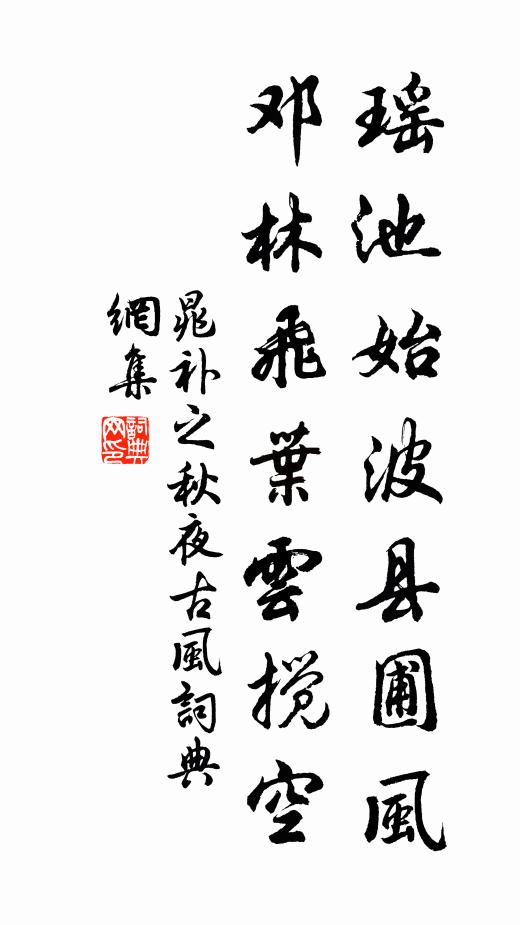 瑶池始波县圃風
邓林飛葉雲搅空
晁补之秋夜古風詞典
網集
詞典
网印